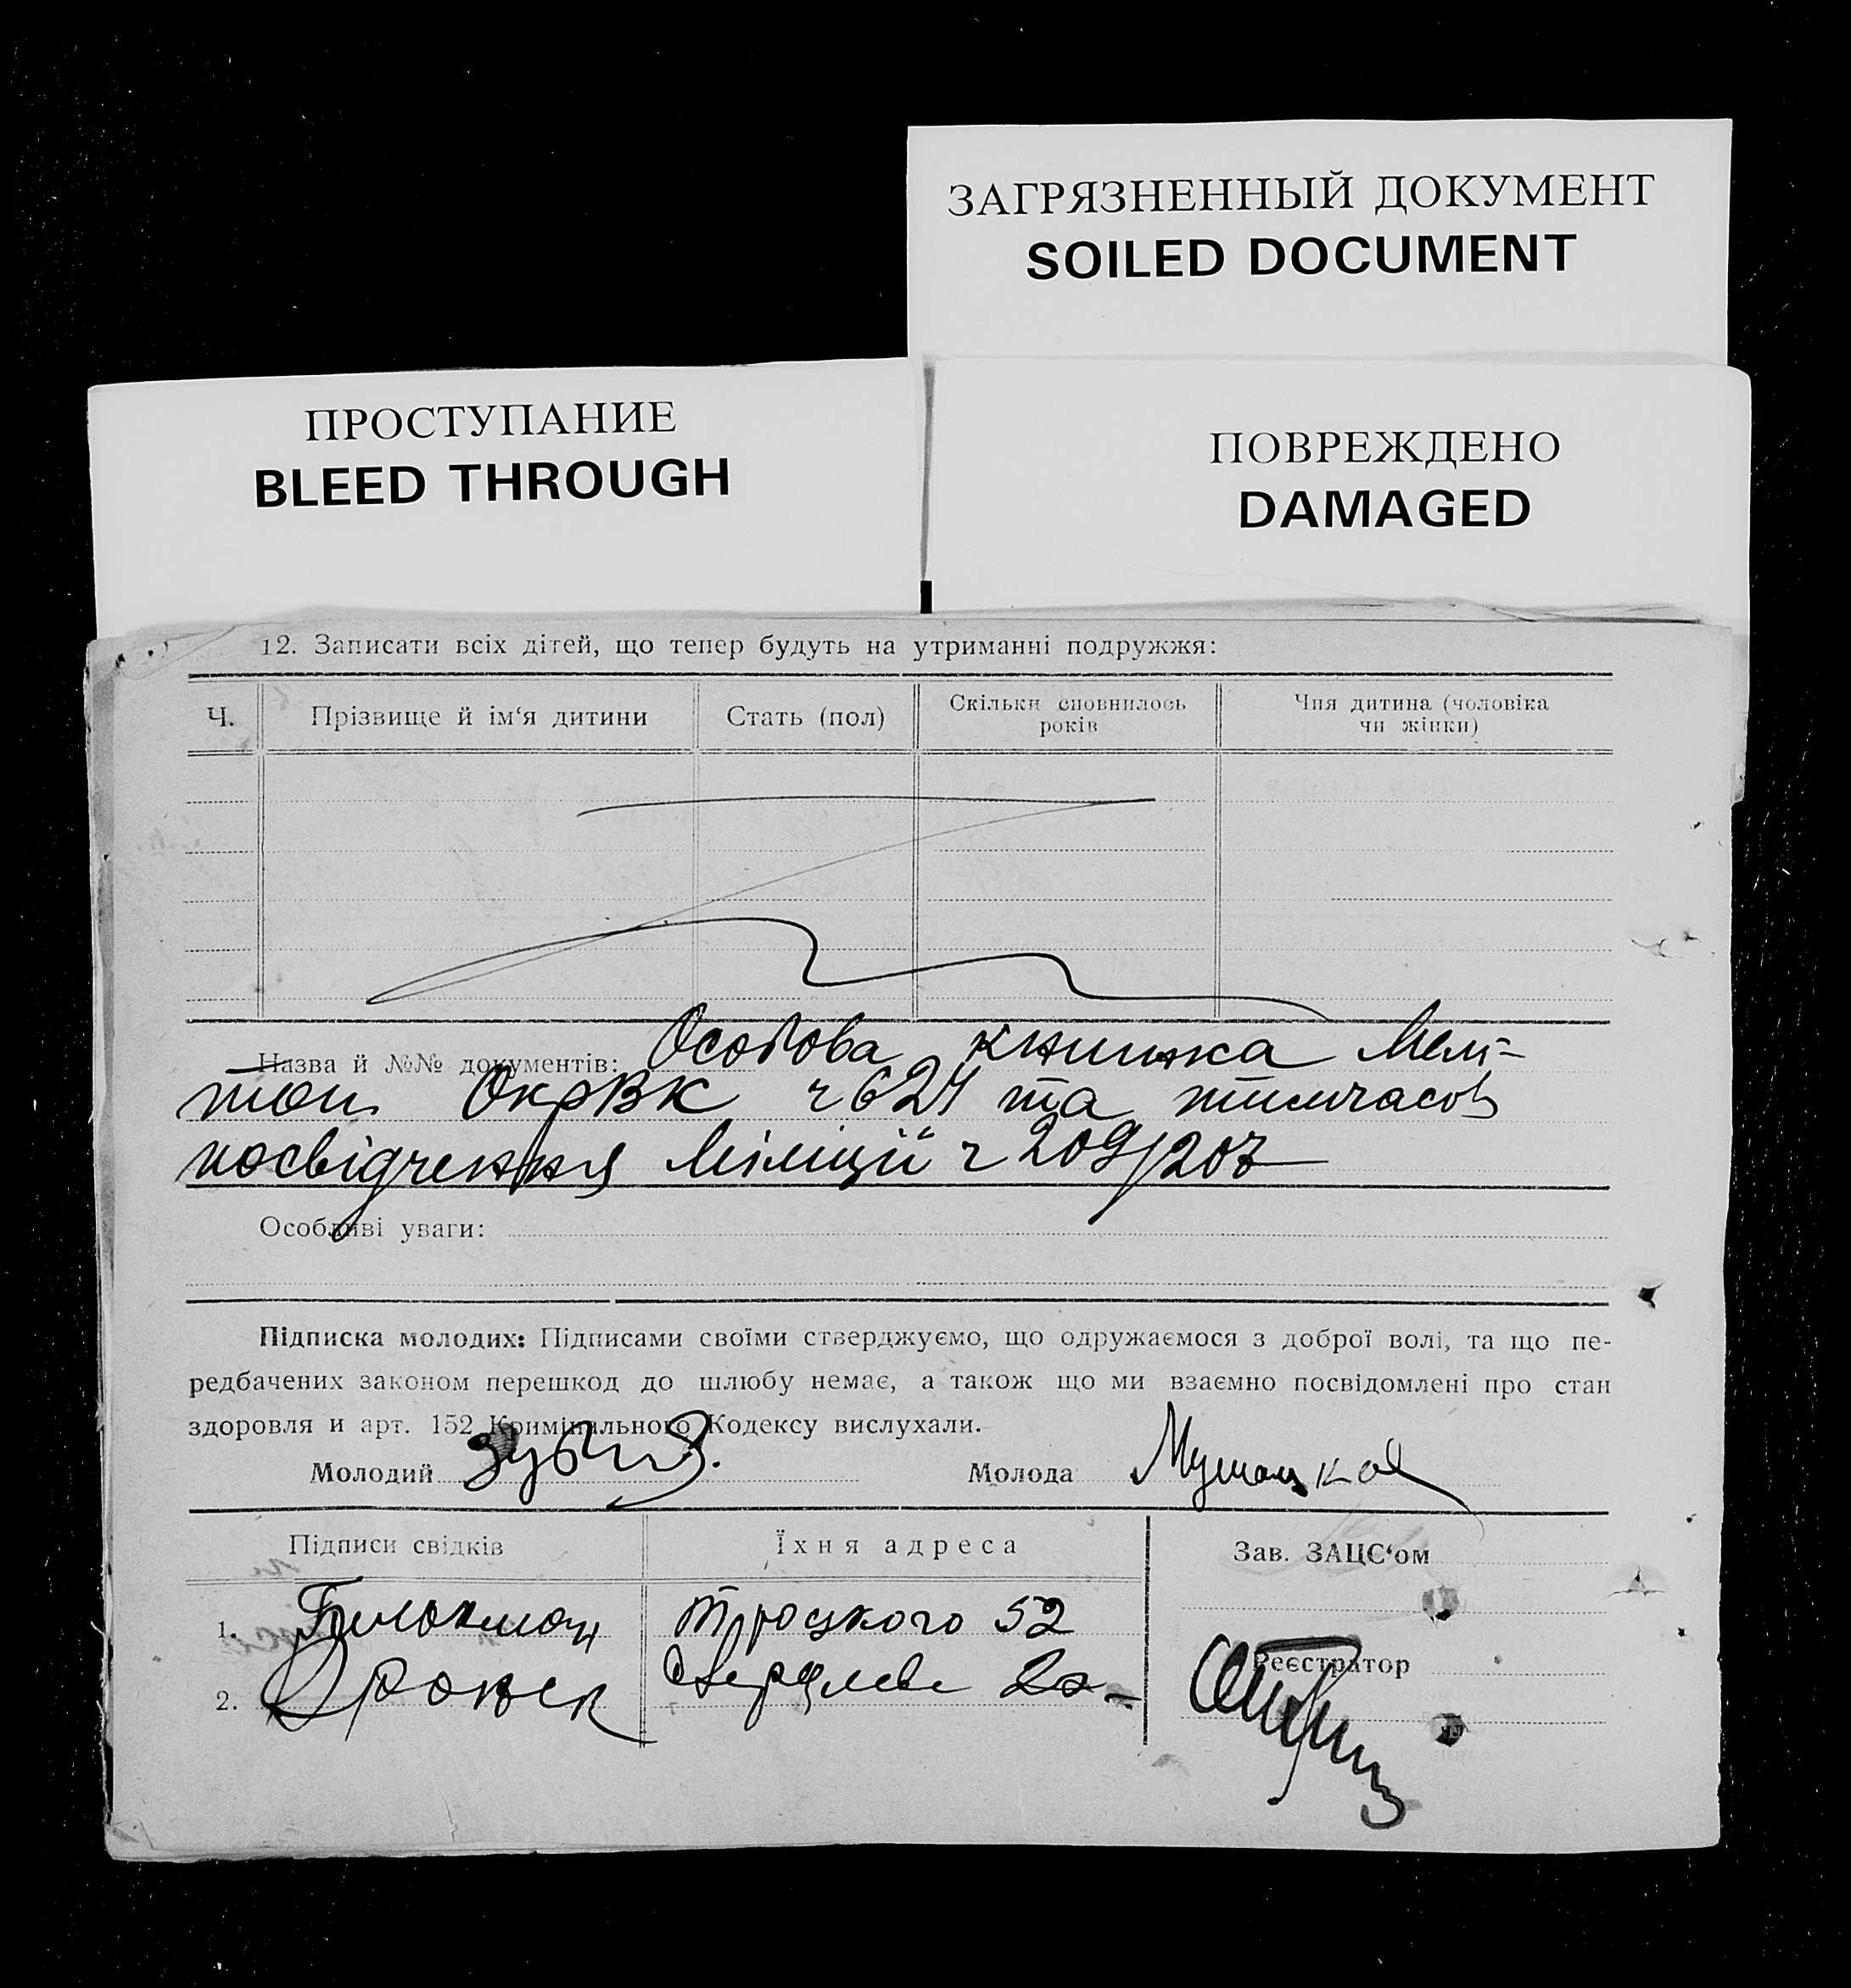 ЗАГРЯЗНЕННЫЙ ДОКУМЕНТ
SOILED DOCUMENT
ПРОСТУПАНИЕ
BLEED THROUGH
ПОВРЕЖДЕНО
DAMAGED
12. Записати всіх дітей, що тепер будуть на утриманні подружжя:
Ч.
Прізвище й ім‘я дитини
Стать (пол)
Скільки сповнилось
років
Чия дитина (чоловіка
чи жінки)
Назва й №№ документів: Особова книжка Мелі-
топ. ОкрВК ч 624 та тимчасов
посвідчення Міліції ч 209/207
Особливі уваги:
Підписка молодих: Підписами своїми стверджуємо, що одружаємося з доброї волі, та що пе-
редбачених законом перешкод до шлюбу немає, а також що ми взаємно посвідомлені про стан
здоровля и арт. 152 Кримінального Кодексу вислухали.
Молодий
Молода
Підписи свідків
Їхня адреса
Зав. ЗАЦС‘ом
1.
Троцкого 52
Реєстратор
2.